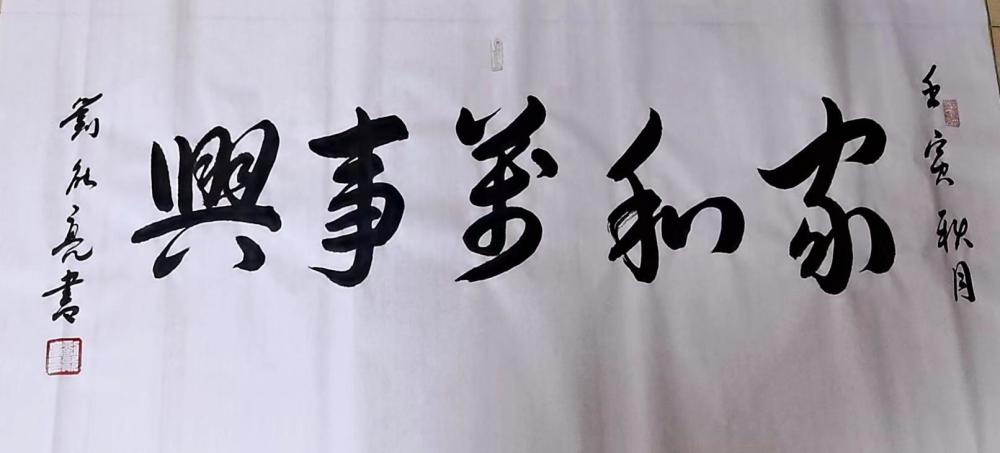 壬寅秋月
家和萬事興
劉能亮書